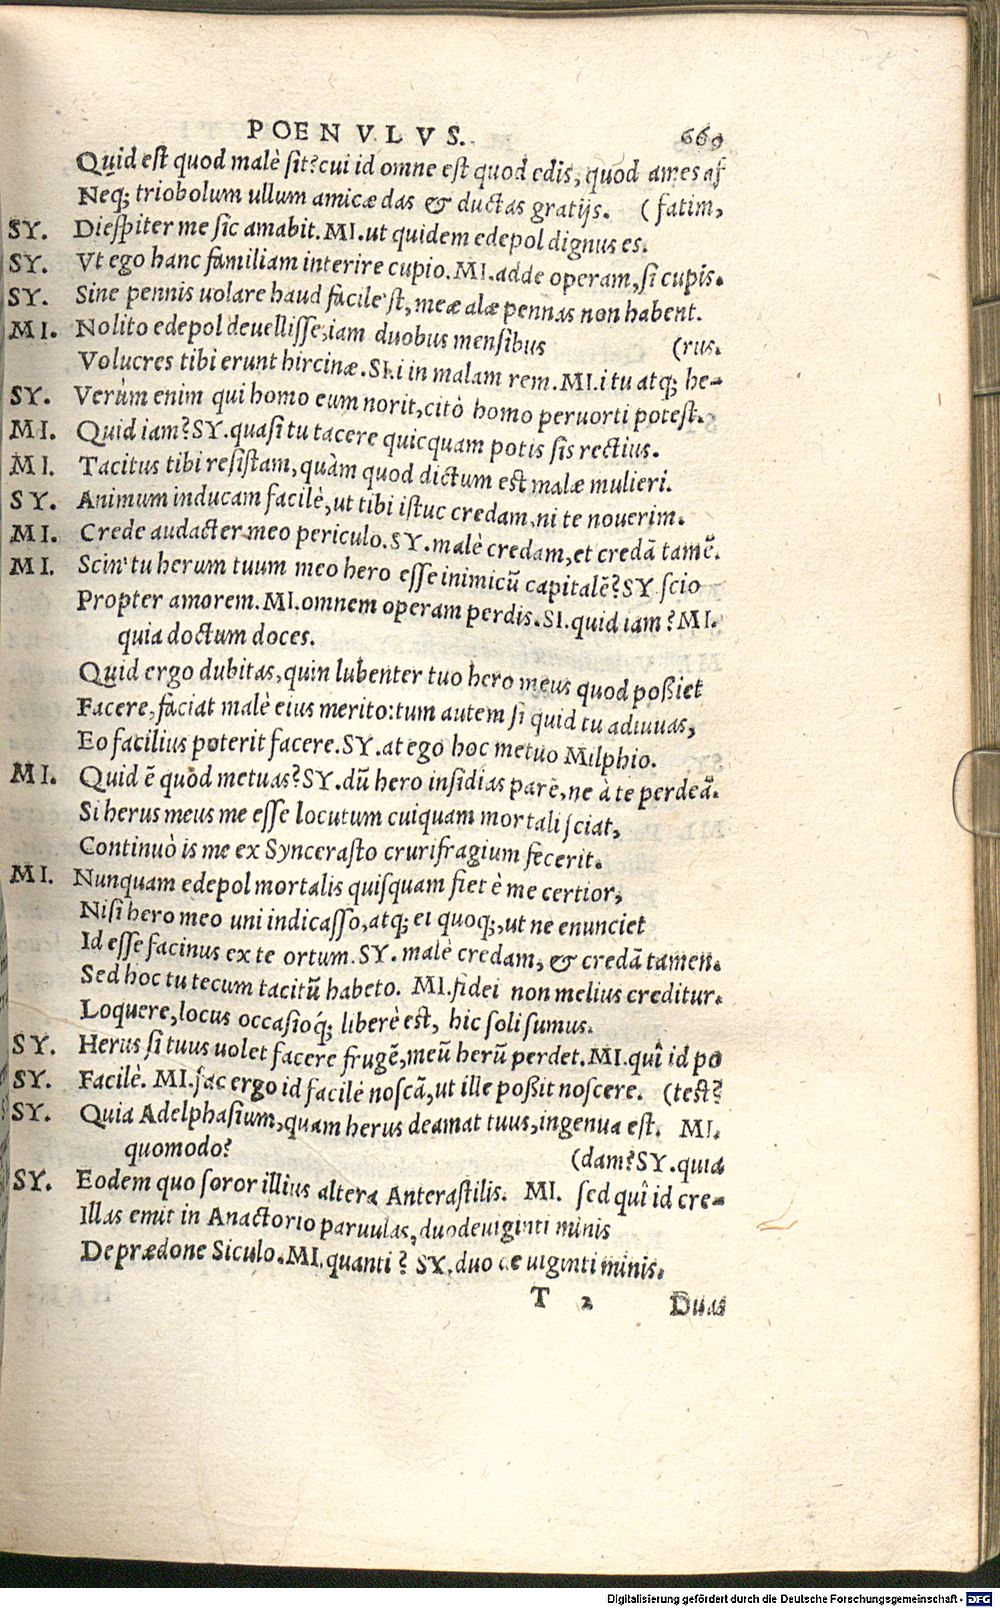 POENVLVS. 669
Quid est quod malè sit? cui id omne est quod edis, quod ames af
Neq; triobolum ullum amicæ das & ductas gratijs. (fatim,
SY. Diespiter me sic amabit. MI. ut quidem edepol dignus es.
SY. Vt ego hanc familiam interire cupio. MI. adde operam, si cupis.
SY. Sine pennis uolare haud facile'st, meæ alæ pennas non habent.
MI. Nolito edepol deuellisse, iam duobus mensibus (rus.
Volucres tibi erunt hircinæ. SI. i in malam rem. MI. i tu atq; he-
SY. Verùm enim qui homo eum norit, citò homo peruorti potest.
MI. Quid iam? SY. quasi tu tacere quicquam potis sis rectius.
MI. Tacitus tibi resistam, quàm quod dictum est malæ mulieri.
SY. Animum inducam facilè, ut tibi istuc credam, ni te nouerim.
MI. Crede audacter meo periculo. SY. malè credam, et credã tamẽ.
MI. Scin' tu herum tuum meo hero esse inimicũ capitalẽ? SY scio
Propter amorem. MI. omnem operam perdis. SI. quid iam? MI.
quia doctum doces.
Quid ergo dubitas, quin lubenter tuo hero meus quod poßiet
Facere, faciat malè eius merito: tum autem si quid tu adiuuas,
Eo facilius poterit facere. SY. at ego hoc metuo Milphio.
MI. Quid ẽ quod metuas? SY. dũ hero insidias parẽ, ne à te perdeã.
Si herus meus me esse locutum cuiquam mortali sciat,
Continuò is me ex Syncerasto crurifragium fecerit.
MI. Nunquam edepol mortalis quisquam fiet è me certior,
Nisi hero meo uni indicasso, atq; ei quoq;, ut ne enunciet
Id esse facinus ex te ortum. SY. malè credam, & credã tamen.
Sed hoc tu tecum tacitũ habeto. MI. fidei non melius creditur.
Loquere, locus occasioq́; liberè est, hic soli sumus.
SY. Herus si tuus uolet facere frugẽ, meũ herũ perdet. MI. quî id po
SY. Facilè. MI. fac ergo id facilè noscã, ut ille poßit noscere. (test?
SY. Quia Adelphasium, quam herus deamat tuus, ingenua est. MI.
quomodo? (dam? SY. quia
SY. Eodem quo soror illius altera Anterastilis. MI. sed quî id cre-
Illas emit in Anactorio paruulas, duodeuiginti minis
De prædone Siculo. MI. quanti? SY. duo de uiginti minis.
T 2 Duas
Digitalisierung gefördert durch die Deutsche Forschungsgemeinschaft - DFG